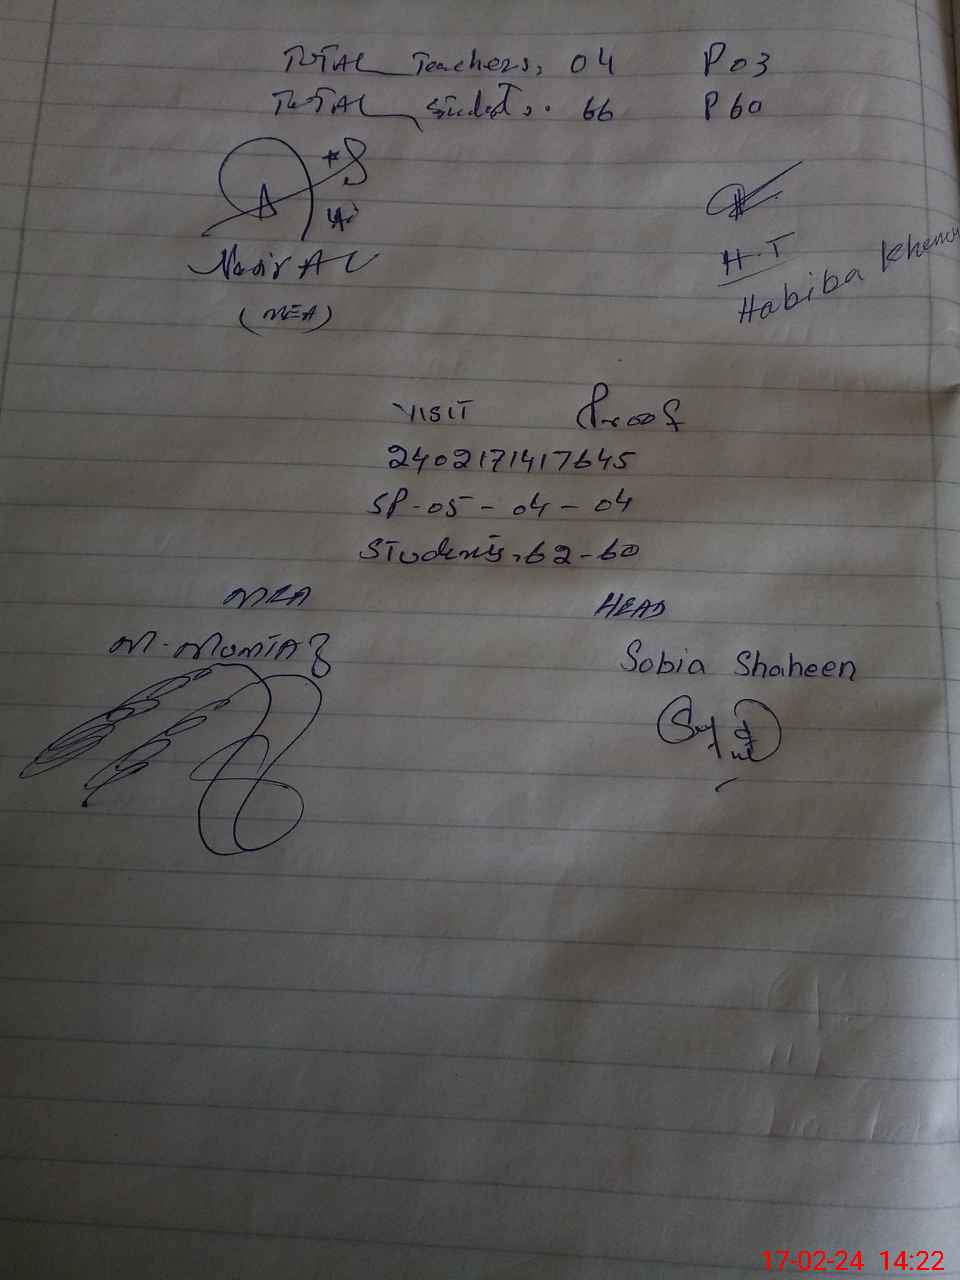 TOTAL Teachers, 04 P 03
TOTAL Students. 66 P 60
Nasir Ali
(MEA)
H.T
Habiba Khanum
VISIT Proof
2402171417645
SP-05-04-04
Students.62-60
MEA HEAD
M. MumTAz Sobia Shaheen
17-02-24 14:22